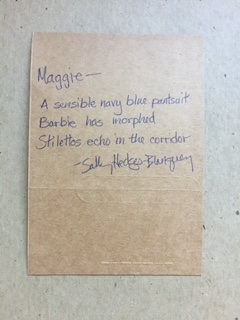 Maggie—
A sensible navy blue pantsuit
Barbie has morphed
Stilettos echo in the corridor
-Sally Hedges-Blanquez